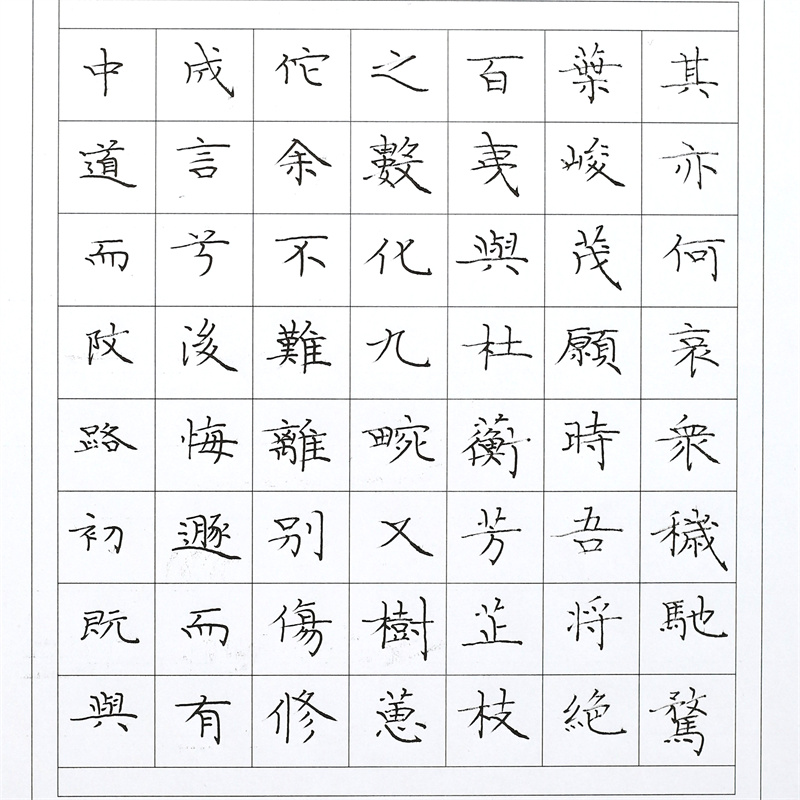 中道而改路初既與
成言兮後悔遯而有
佗余不難離別傷修
之數化九畹又樹蕙
百畝與杜蘅芳芷枝
葉峻茂願時吾将絶
其亦何哀衆穢馳騖